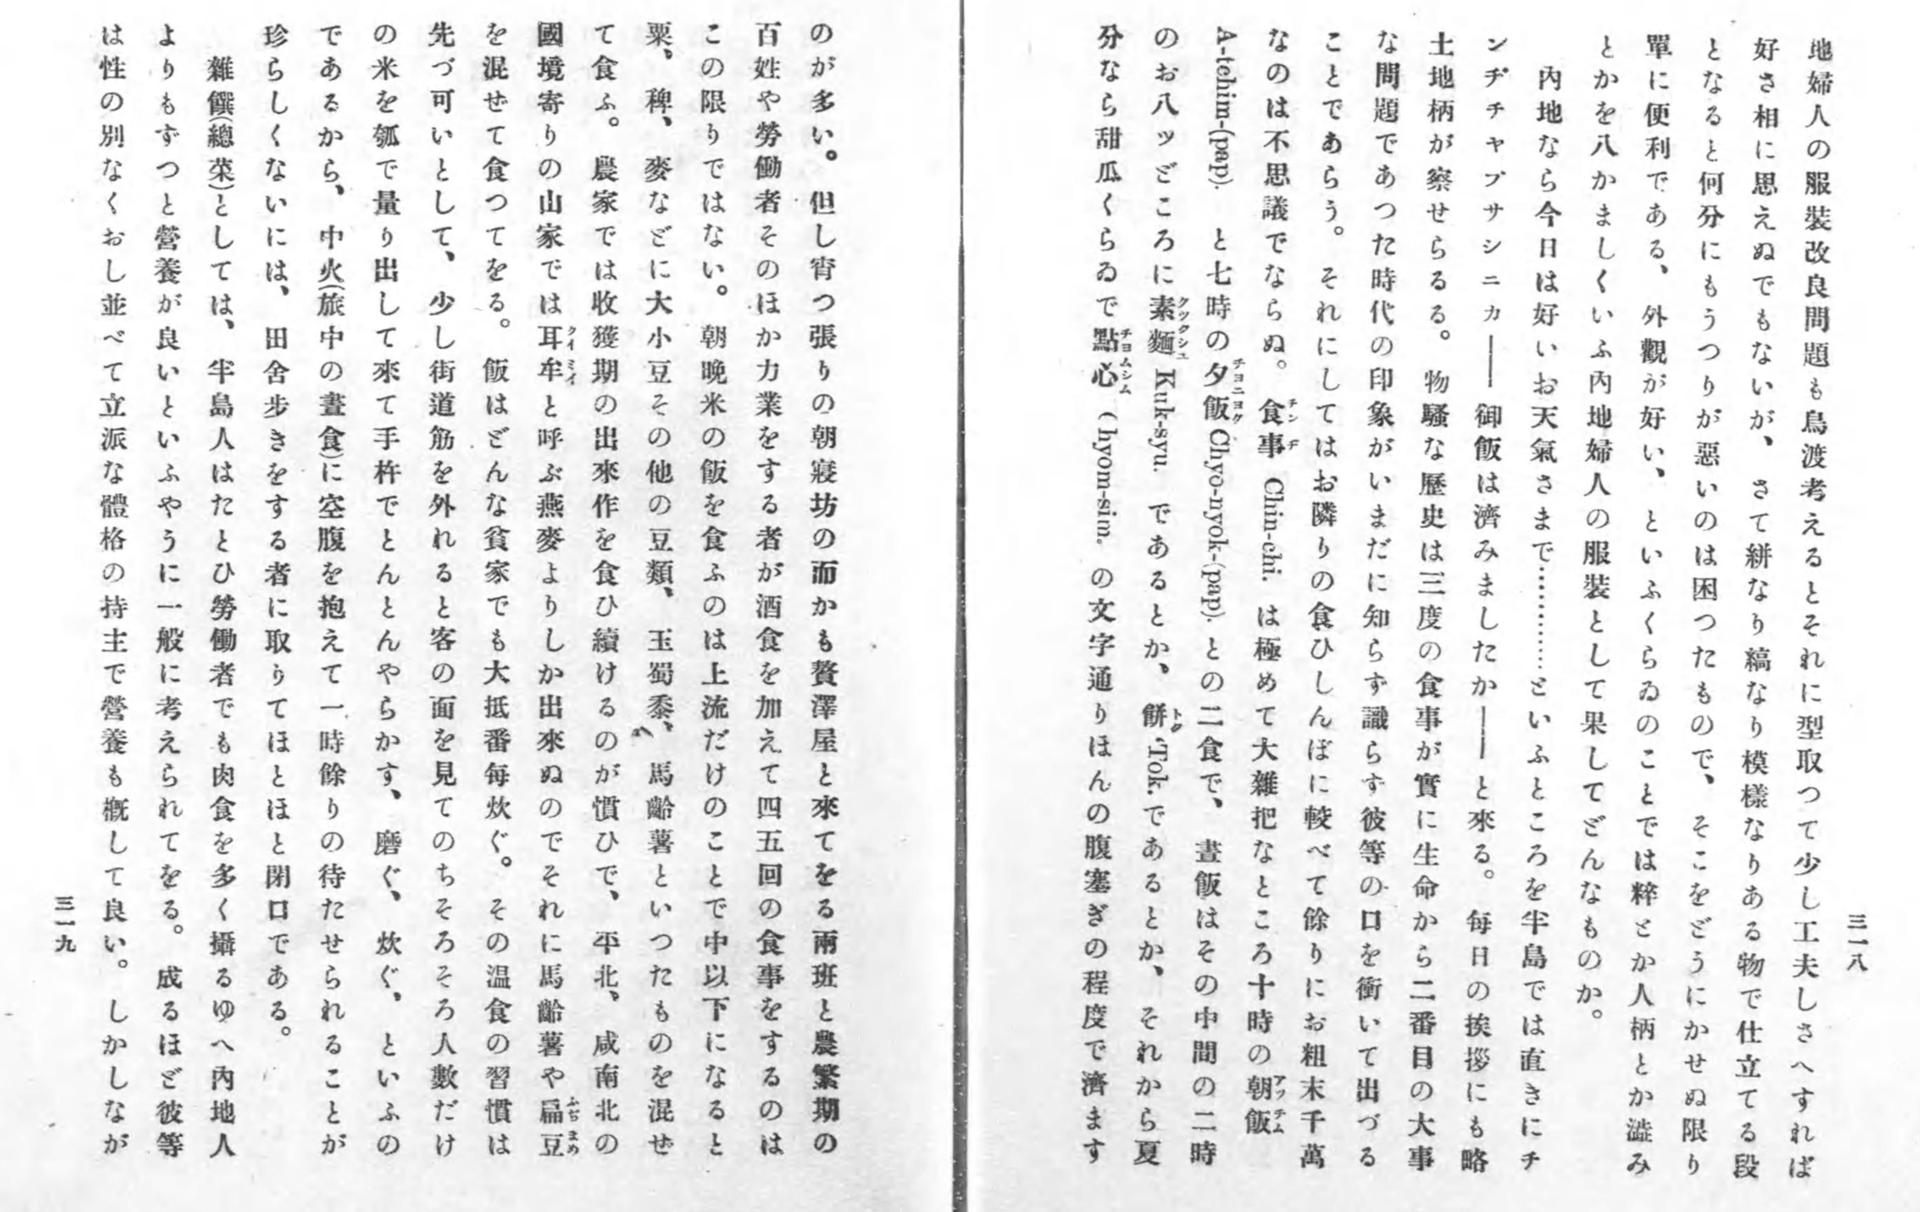 三一八
地婦人の服裝改良問題も鳥渡考えるとそれに型取つて少し工夫しさへすれば
好さ相に思えぬでもないが、さて絣なり縞なり模樣なりある物で仕立てる段
となると何分にもうつりが惡いのは困つたもので、そこをどうにかせぬ限り
單に便利である、外觀が好い、といふくらゐのことでは粹とか人柄とか澁み
とかを八かましくいふ內地婦人の服裝として果してどんなものか。
內地なら今日は好いお天氣さまで…………といふところを半島では直きにチ
ンヂチャプサシニカ――御飯は濟みましたか――と來る。每日の挨拶にも略
土地柄が察せらるる。物騷な歷史は三度の食事が實に生命から二番目の大事
な問題であつた時代の印象がいまだに知らず識らず彼等の口を衝いて出づる
ことであらう。それにしてはお隣りの食ひしんばに較べて餘りにお粗末千萬
なのは不思議でならぬ。食事チンヂ Chin-chi. は極めて大雜把なところ十時の朝飯アツチム
A-tchim-(pap). と七時の夕飯チヨニヨク Chyo-nyok-(pap). との二食で、晝飯はその中間の二時
のお八ッどころに素麵クックシユ Kuk-syu. であるとか、餠トク Tok. であるとか、それから夏
分なら甜瓜くらゐで點心チヨムシム (hyom-sim. の文字通りほんの腹塞ぎの程度で濟ます
のが多い。但し宵つ張りの朝寢坊の而かも贅澤屋と來てをる兩班と農繁期の
百姓や勞働者そのほか力業をする者が酒食を加えて四五回の食事をするのは
この限りではない。朝晩米の飯を食ふのは上流だけのことで中以下になると
粟、稗、麥などに大小豆その他の豆類、玉蜀黍、馬齡薯といつたものを混ぜ
て食ふ。農家では收獲期の出來作を食ひ續けるのが慣ひで、平北、咸南北の
國境寄りの山家では耳牟クイミイと呼ぶ燕麥よりしか出來ぬのでそれに馬齡薯や扁豆ふぢまめ
を混ぜて食つてをる。飯はどんな貧家でも大抵番每炊ぐ。その温食の習慣は
先づ可いとして、少し街道筋を外れると客の面を見てのちそろそろ人數だけ
の米を瓠で量り出して來て手杵でとんとんやらかす、磨ぐ、炊ぐ、といふの
であるから、中火(旅中の晝食)に空腹を抱えて一時餘りの待たせられることが
珍らしくないには、田舍步きをする者に取りてほとほと閉口である。
雜饌(總菜)としては、半島人はたとひ勞働者でも肉食を多く攝るゆへ內地人
よりもずつと營養が良いといふやうに一般に考えられてをる。成るほど彼等
は性の別なくおし並べて立派な體格の持主で營養も槪して良い。しかしなが
三一九